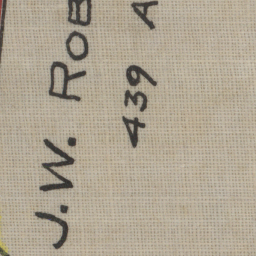 J.W. ROB
439 A